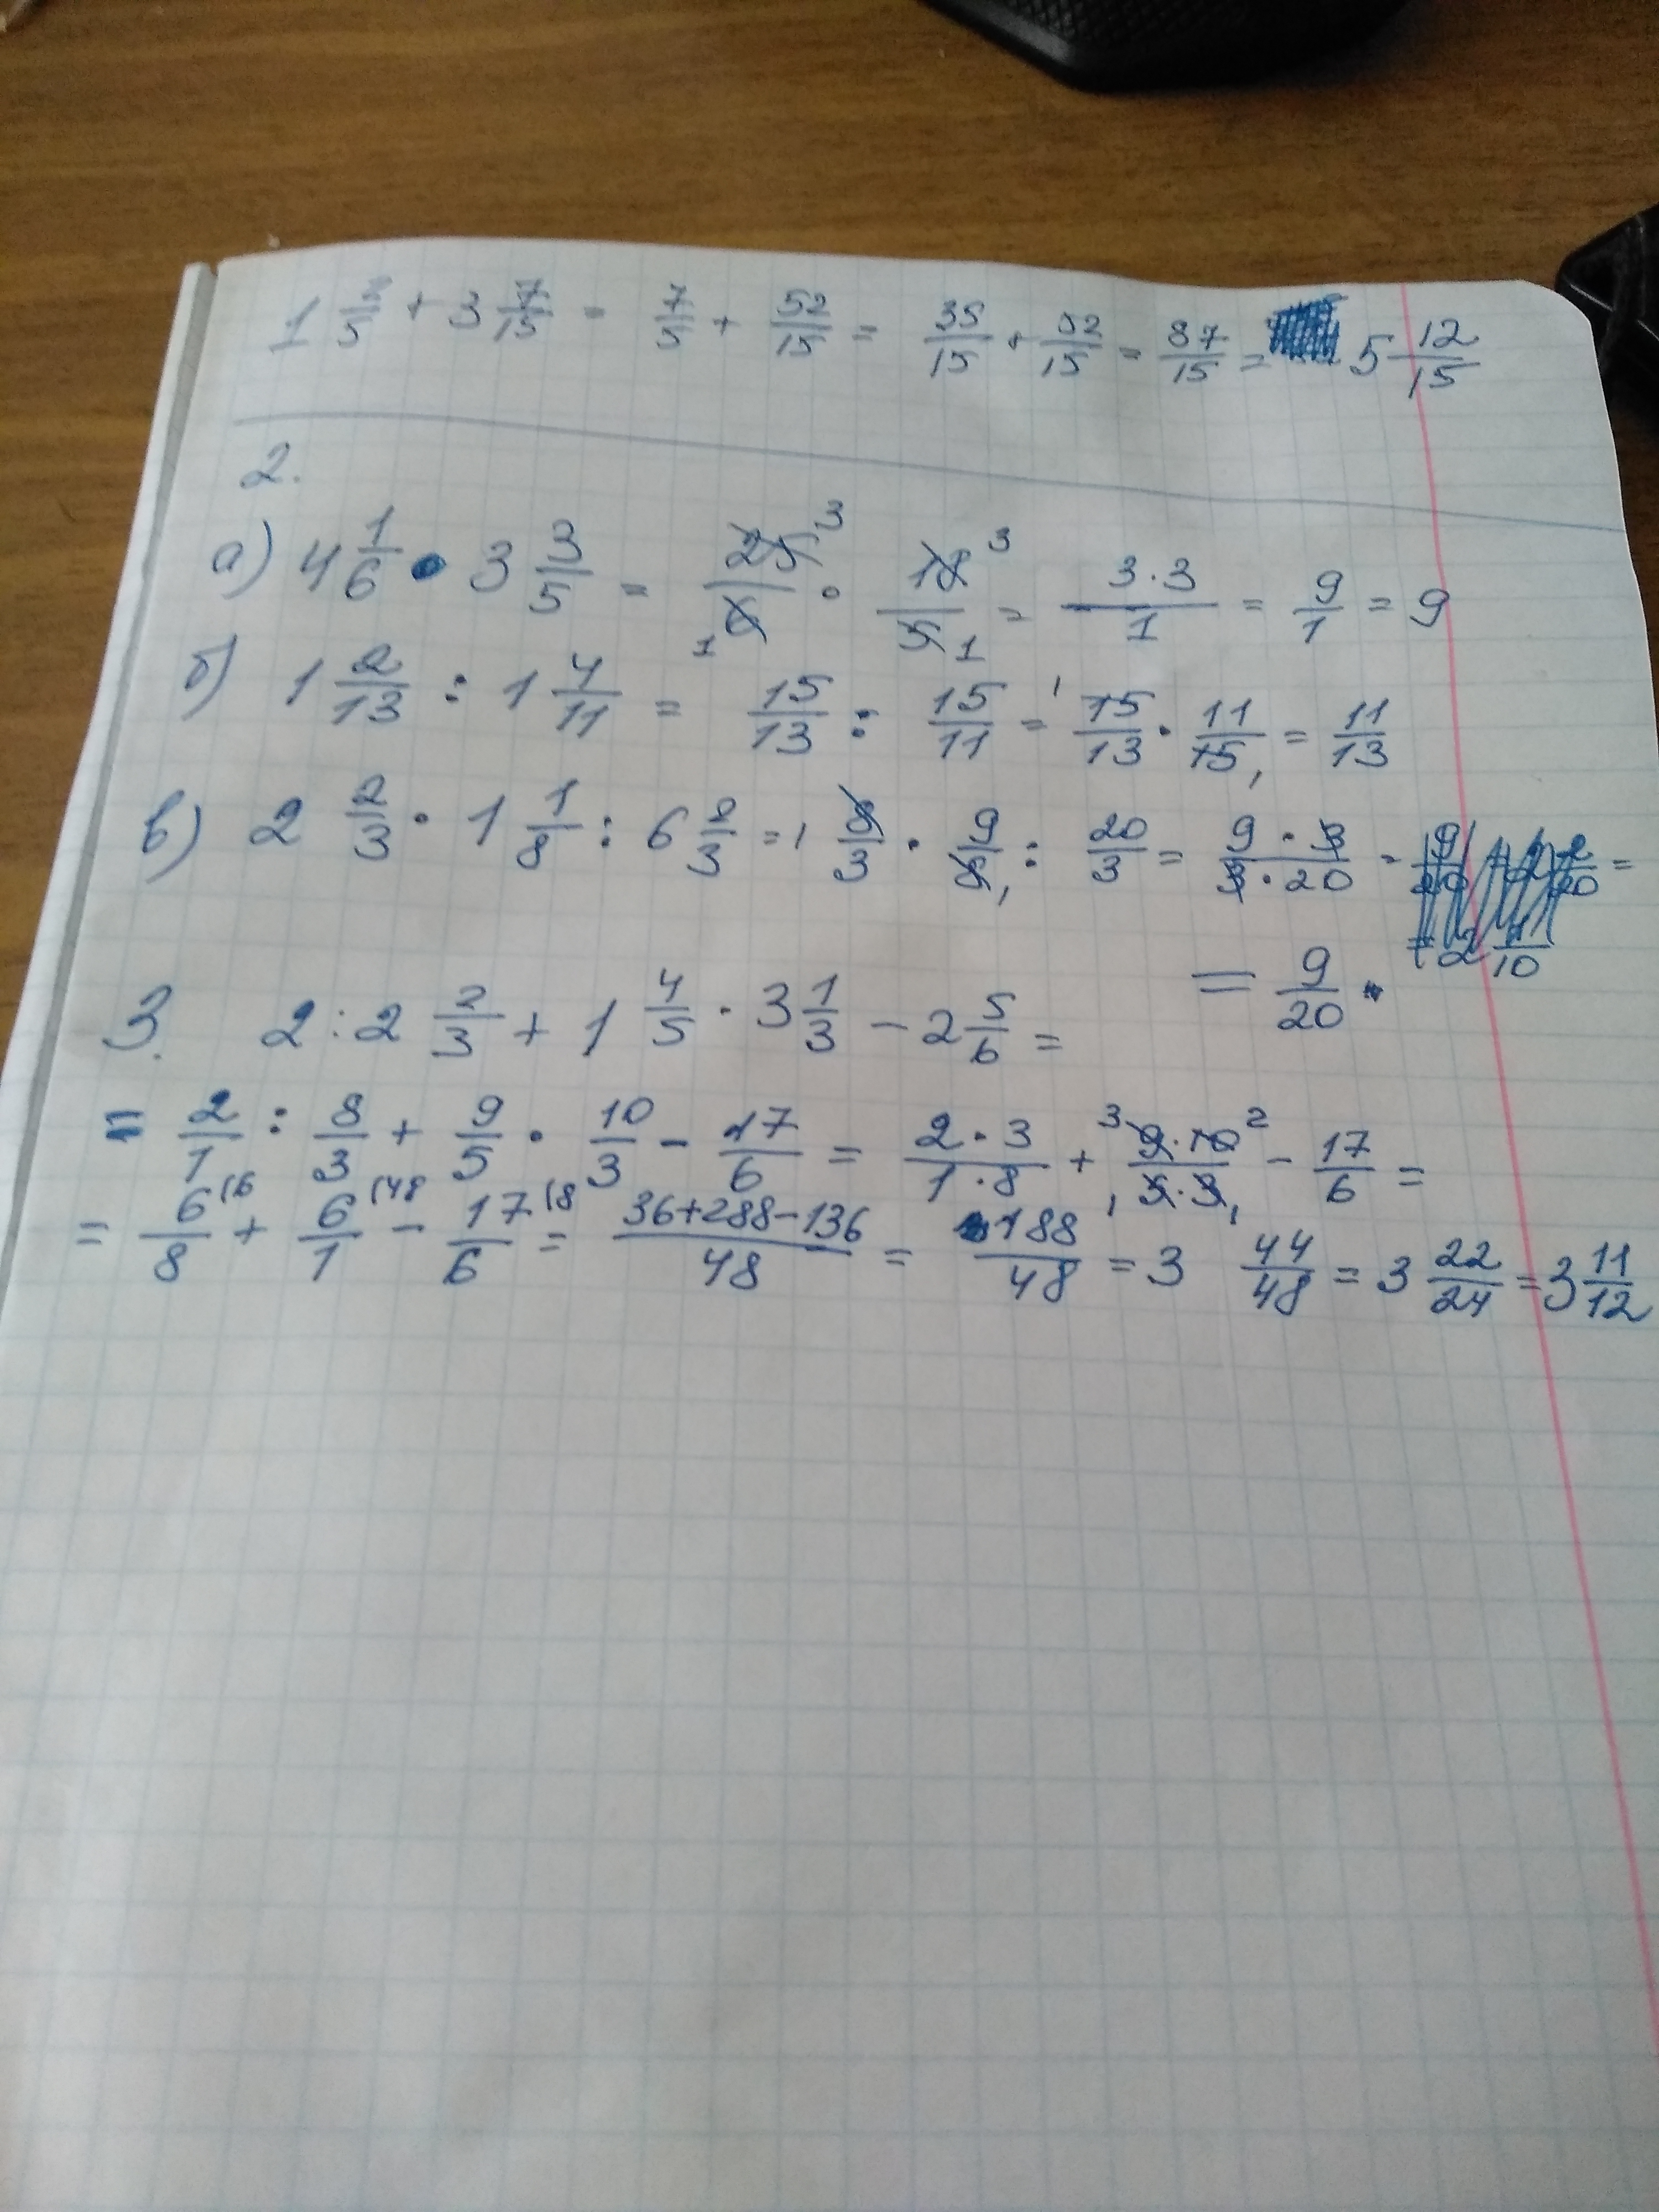 1 2/5 + 3 7/15 = 7/5 + 52/15 = 35/15 + 52/15 = 87/15 = 5 12/15
2.
а) 4 1/6 • 3 3/5 = 25/6 • 18/5 = 3·3/1 = 9/1 = 9
б) 1 2/13 : 1 4/11 = 15/13 : 15/11 = 15/13 · 11/15 = 11/13
в) 2 2/3 · 1 1/8 : 6 2/3 = 8/3 · 9/8 : 20/3 = 9·3/3·20 =
= 9/20
3. 2 : 2 2/3 + 1 4/5 · 3 1/3 - 2 5/6 =
= 2/1 : 8/3 + 9/5 · 10/3 - 17/6 = 2·3/1·8 + 9·10/5·3 - 17/6 =
= 6/8 + 6/1 - 17/6 = 36+288-136/48 = 188/48 = 3 44/48 = 3 22/24 = 3 11/12